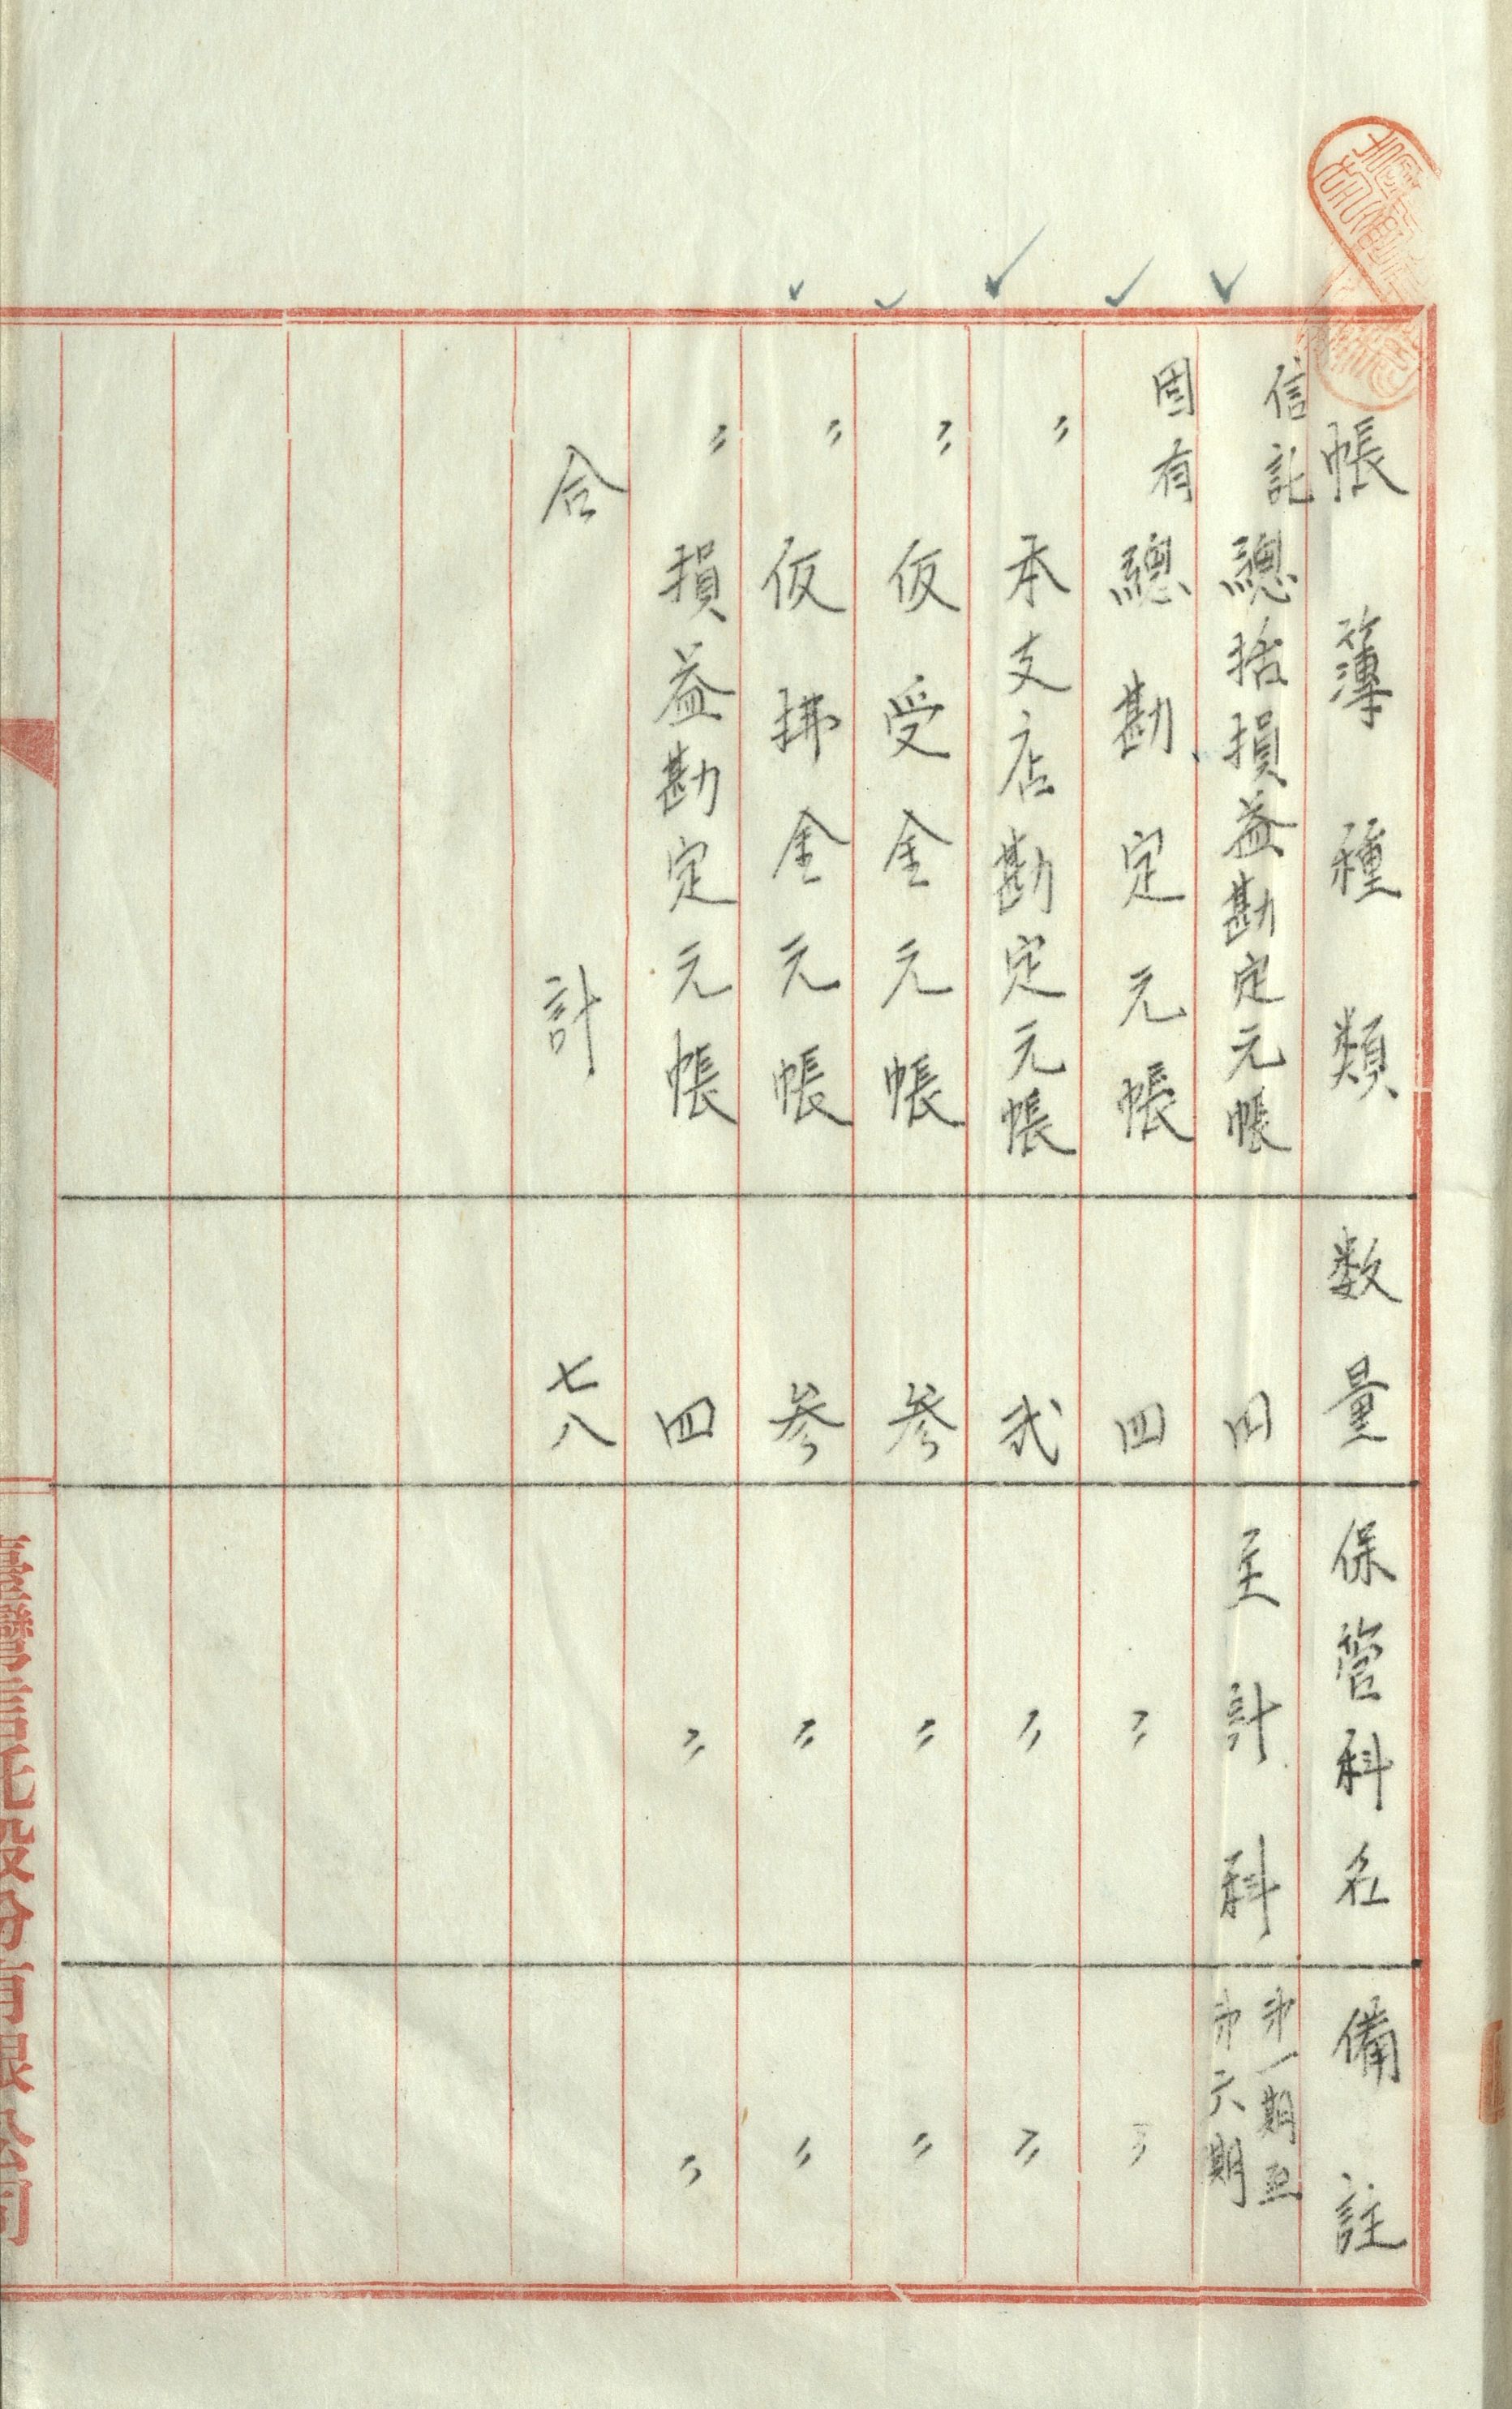 帳簿種類 数量 保管科名 備註
信託 總括損益勘定元帳 四 主計科 第一期至第六期
固有 總勘定元帳 四 〃 〃
〃 本支店勘定元帳 弐 〃 〃
〃 仮受金元帳 参 〃 〃
〃 仮拂金元帳 参 〃 〃
〃 損益勘定元帳 四 〃 〃
合計 七八
臺灣信託股份有限公司